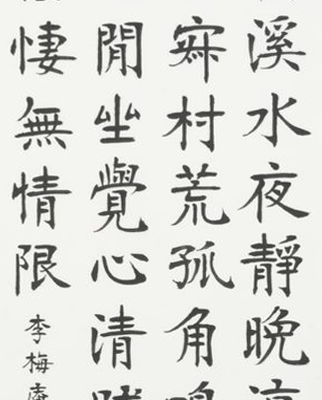 溪水夜靜晚
村荒孤角
閒坐覺心清
悽無情限
李梅庵